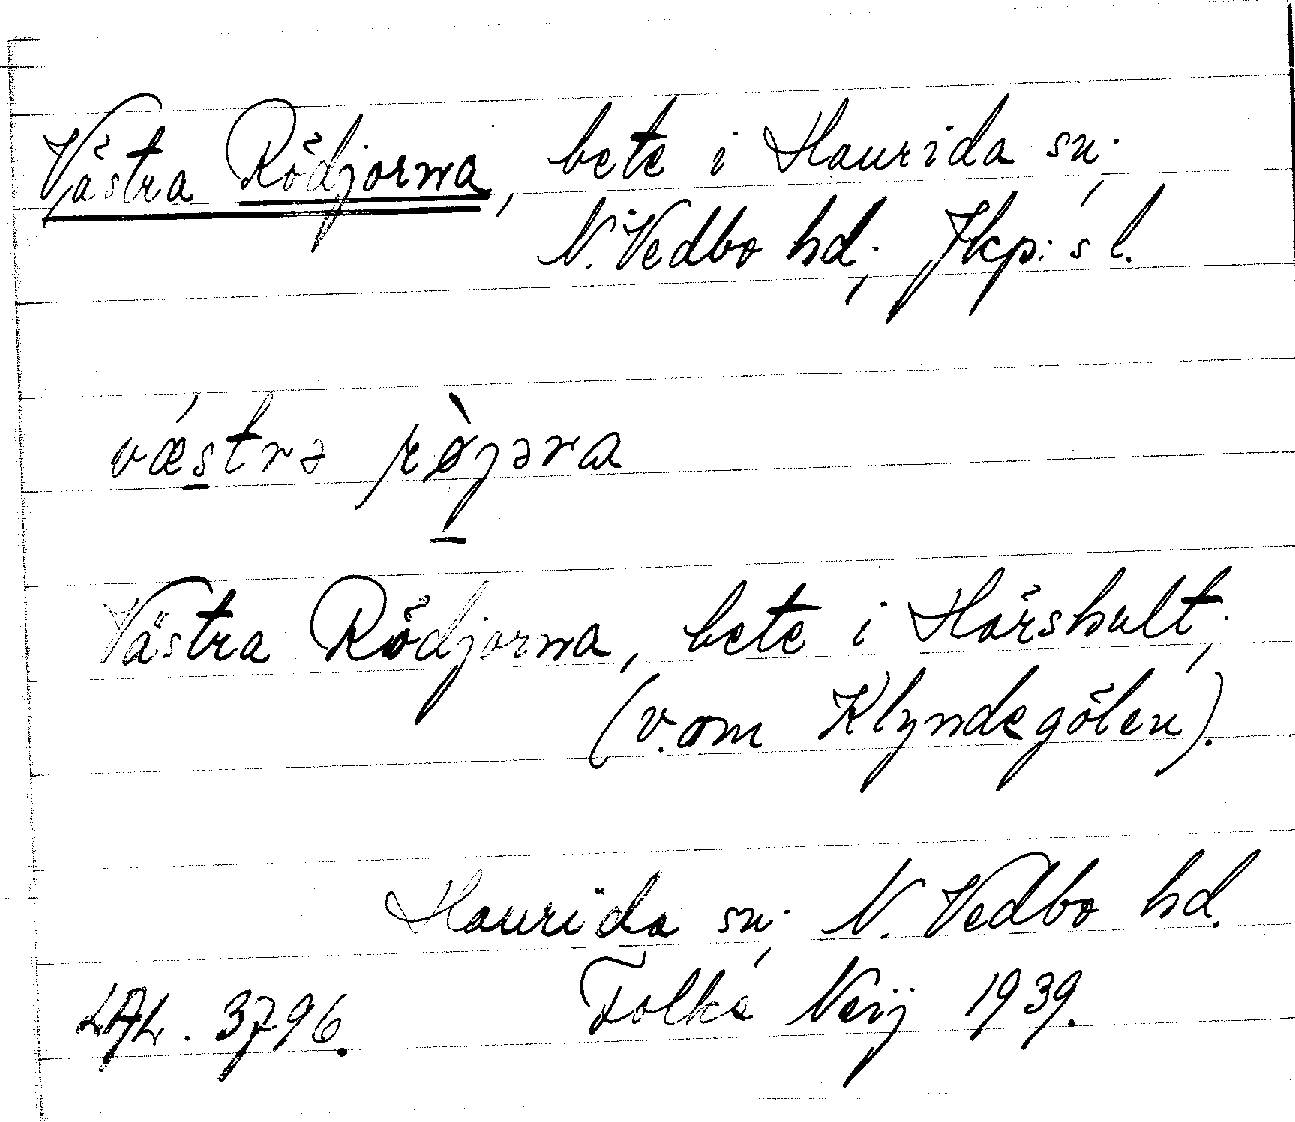 Västra Rödjorna, bete i Haurida sn;
N. Vedbo hd; Jkp:s l.
vǽstrə rø̀jəra
Västra Rödjorna, bete i Hårshult;
(v. om Klyndegölen).
Haurida sn; N. Vedbo hd.
LAL. 3796. Folke Neij 1939.